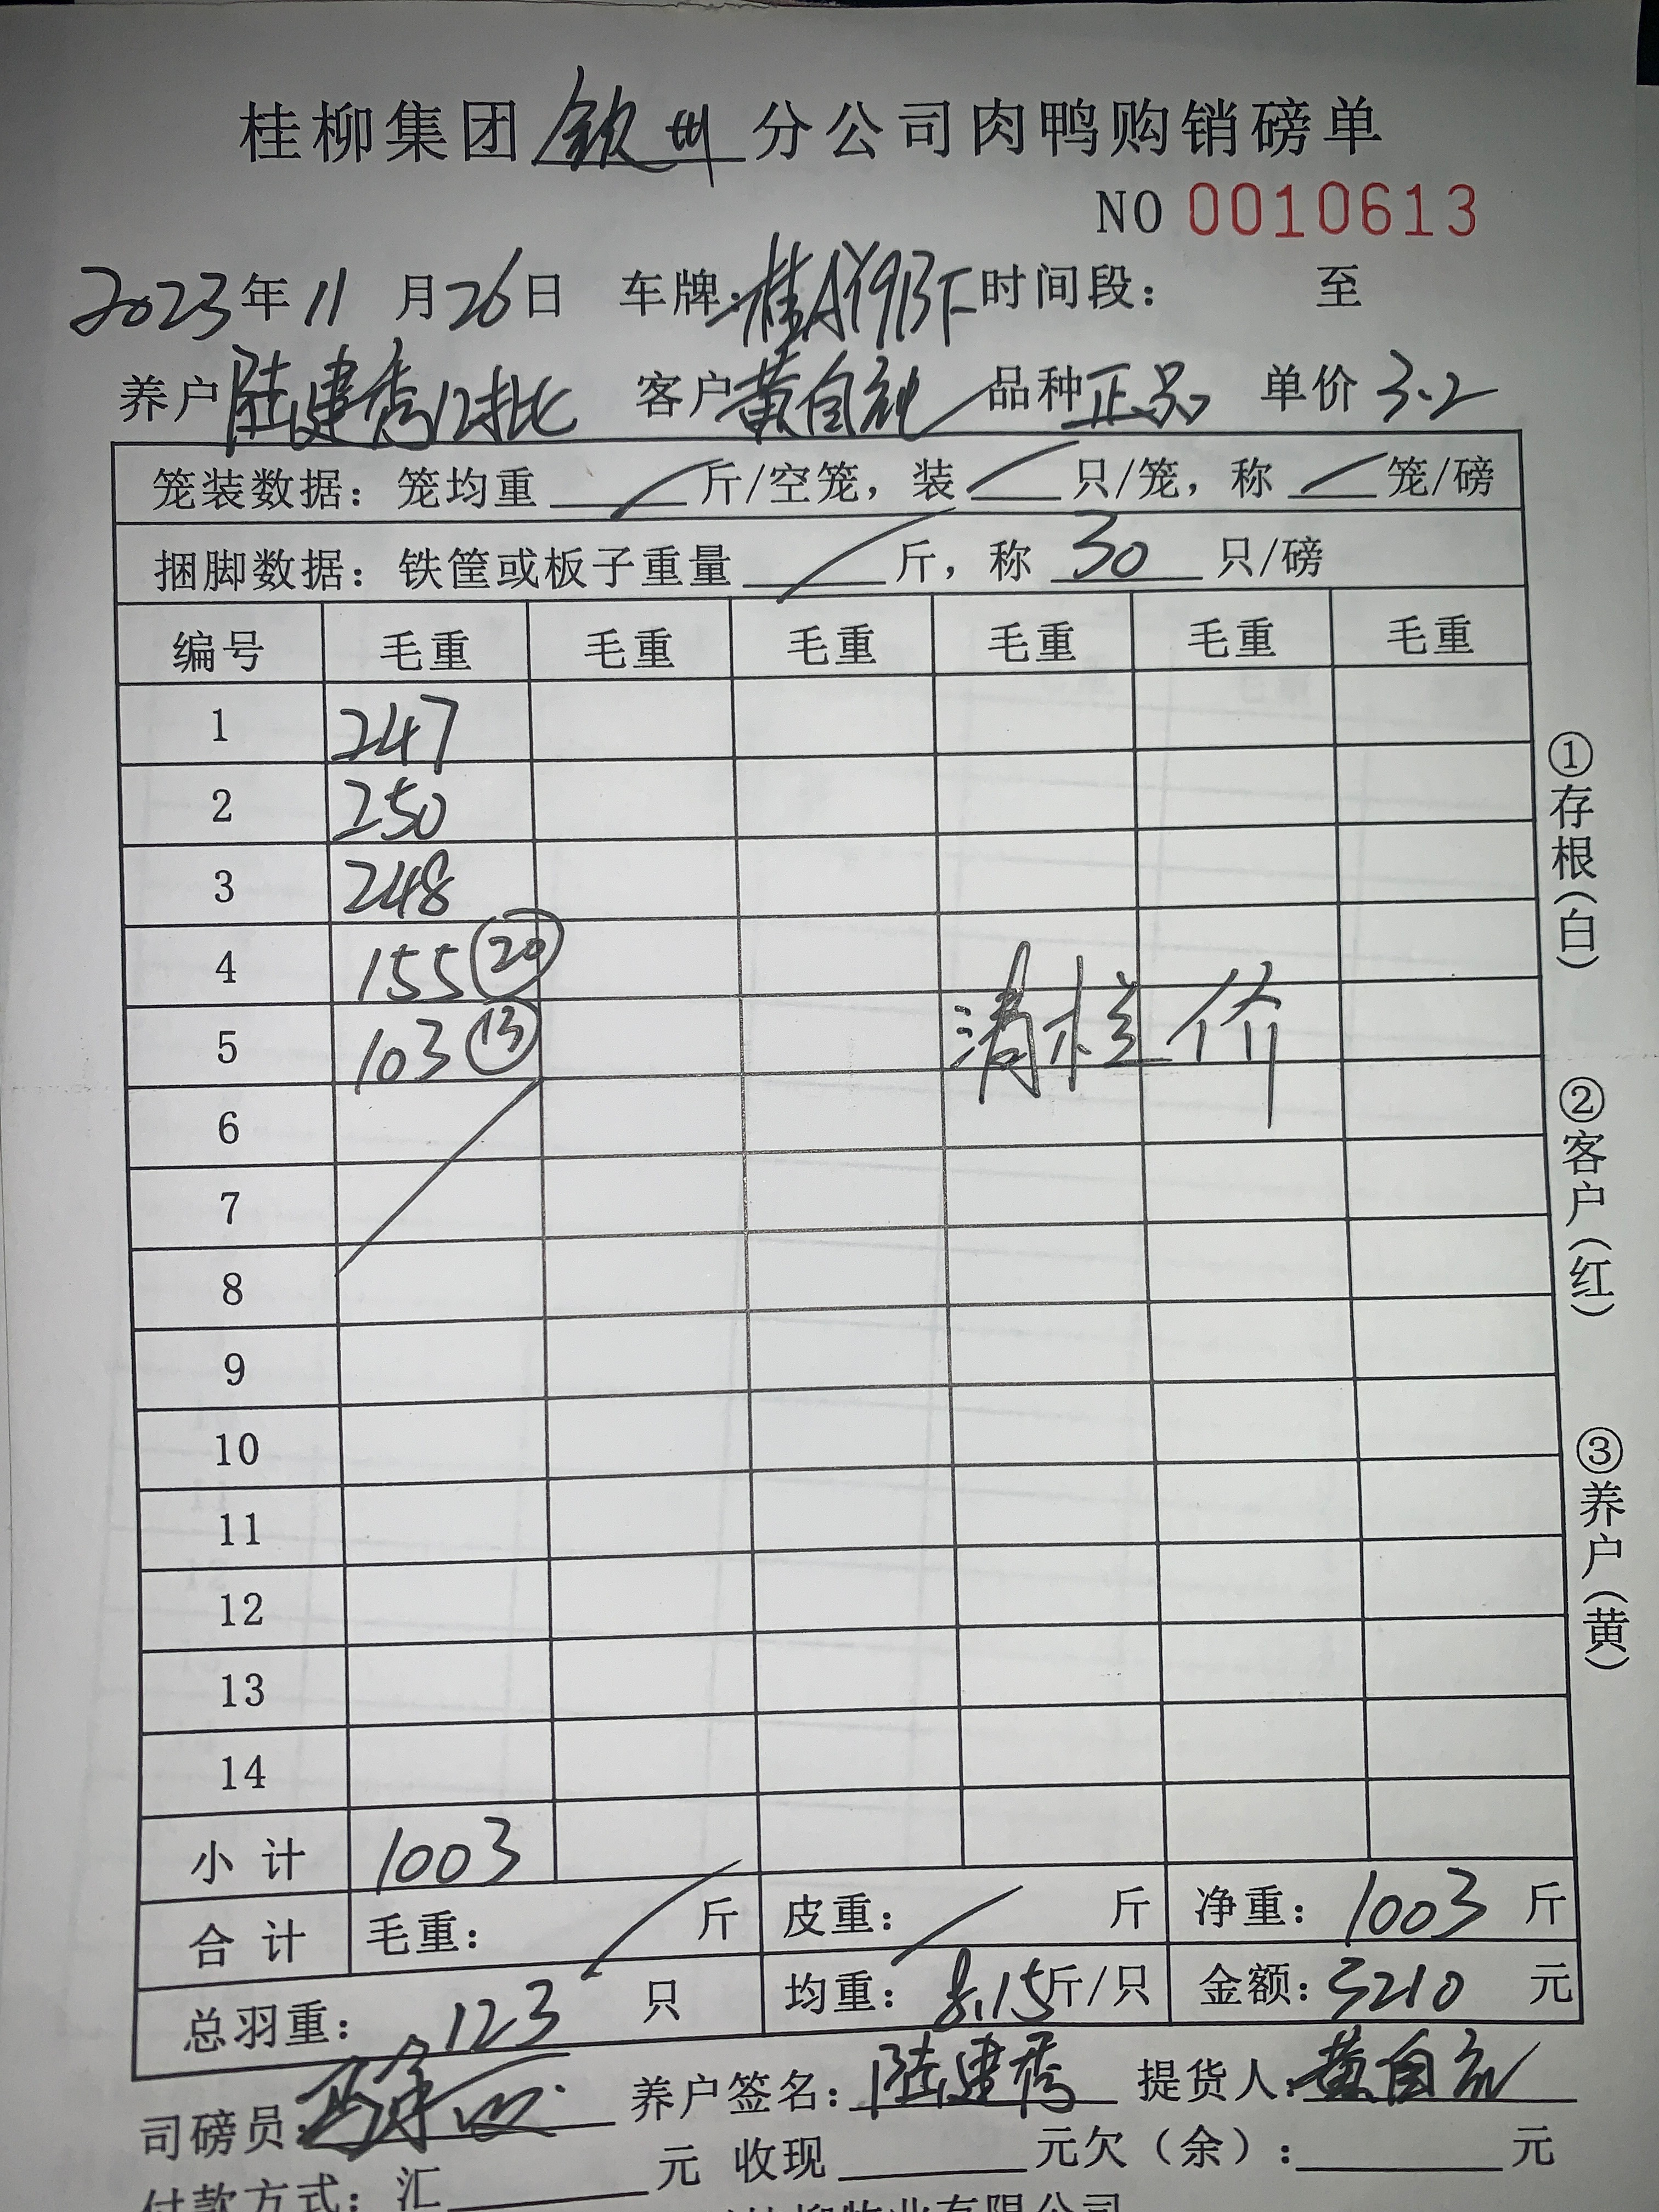 桂柳集团 钦州 分公司肉鸭购销磅单
NO 0010613
2023年11月26日 车牌: 桂A 时间段: 至
养户 陆建秀12批 客户 黄自 品种 正品 单价 3.2
笼装数据: 笼均重 斤/空笼, 装 只/笼, 称 笼/磅
捆脚数据: 铁筐或板子重量 斤, 称 30 只/磅
编号 毛重 毛重 毛重 毛重 毛重 毛重
1 247
2 250
3 248
4 155 ⑳
5 103 ⑬
清栏价
6
7
8
9
10
11
12
13
14
小计 1003
合计 毛重: 斤 皮重: 斤 净重: 1003 斤
总羽重: 123 只 均重: 8.15斤/只 金额: 3210 元
司磅员: 养户签名: 陆建秀 提货人: 黄自
付款方式: 汇 元 收现 元欠(余): 元
①存根(白)
②客户(红)
③养户(黄)